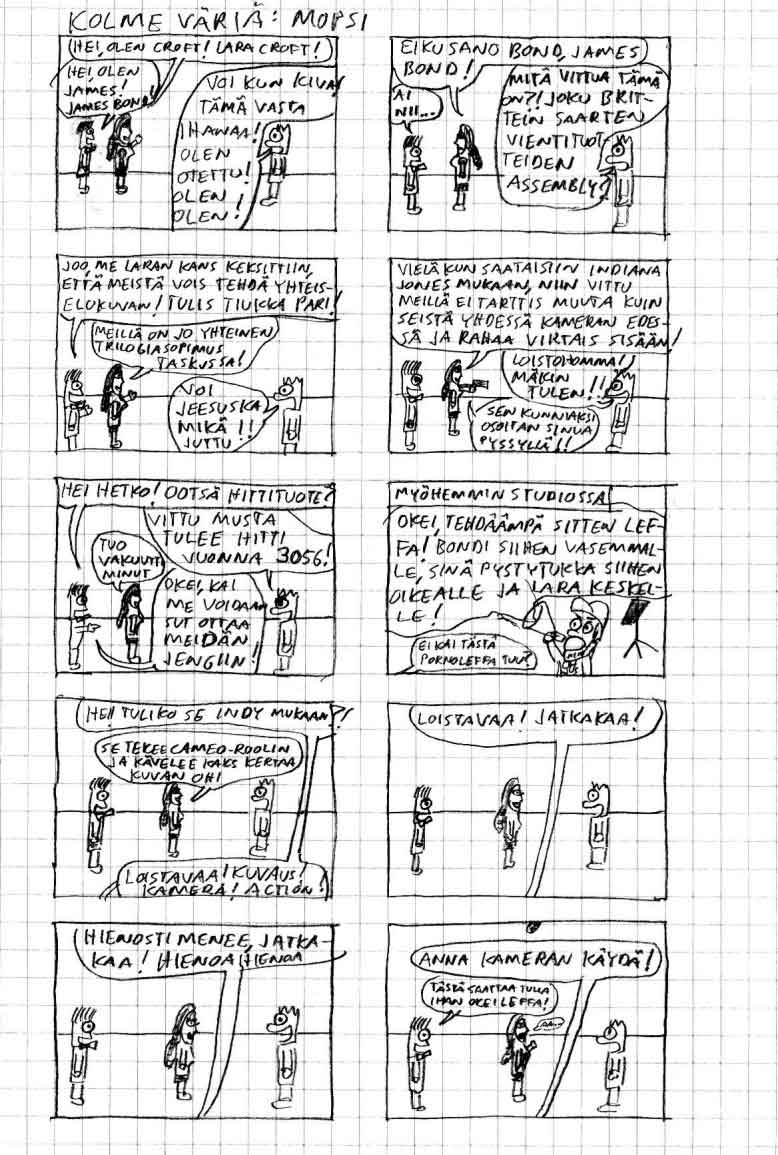 KOLME VÄRIÄ: MOPSI
HEI, OLEN CROFT! LARA CROFT!
HEI, OLEN
JAMES!
JAMES BOND!
VOI KUN KIVA!
TÄMÄ VASTA
IHANAA!
OLEN
OTETTU!
OLEN!
OLEN!
EIKU SANO BOND, JAMES
BOND!
AI
NII...
MITÄ VITTUA TÄMÄ
ON?! JOKU BRIT-
TEIN SAARTEN
VIENTITUOT-
TEIDEN
ASSEMBLY?
JOO, ME LARAN KANS KEKSITTIIN,
ETTÄ MEISTÄ VOIS TEHDÄ YHTEIS-
ELOKUVAN! TULIS TIUKKA PARI!
MEILLÄ ON JO YHTEINEN
TRILOGIASOPIMUS
TASKUSSA!
VOI
JEESUSKA
MIKÄ !!
JUTTU
VIELÄ KUN SAATAISIIN INDIANA
JONES MUKAAN, NIIN VITTU
MEILLÄ EI TARTTIS MUUTA KUIN
SEISTÄ YHDESSÄ KAMERAN EDES-
SÄ JA RAHAA VIRTAIS SISÄÄN!
LOISTOHOMMA!
MÄKIN
TULEN!!
SEN KUNNIAKSI
OSOITAN SINUA
PYSSYLLÄ!!
HEI HETKO! OOTSÄ HITTITUOTE?
VITTU MUSTA
TULEE HITTI
VUONNA 3056!
TUO
VAKUUTTI
MINUT
OKEI, KAI
ME VOIDAAN
SUT OTTAA
MEIDÄN
JENGIIN!
MYÖHEMMIN STUDIOSSA
OKEI, TEHDÄÄMPÄ SITTEN LEF-
FA! BONDI SIIHEN VASEMMAL-
LE, SINÄ PYSTYTUKKA SIIHEN
OIKEALLE JA LARA KESKEL-
LE!
EI KAI TÄSTÄ
PORNOLEFFA TUU?
HEI! TULIKO SE INDY MUKAAN?!
SE TEKEE CAMEO-ROOLIN
JA KÄVELEE KAKS KERTAA
KUVAN OHI
LOISTAVAA! KUVAUS!
KAMERA! ACTION!
LOISTAVAA! JATKAKAA!
HIENOSTI MENEE, JATKA-
KAA! HIENOA, HIENOA
ANNA KAMERAN KÄYDÄ!
TÄSTÄ SAATTAA TULLA
IHAN OKEI LEFFA!